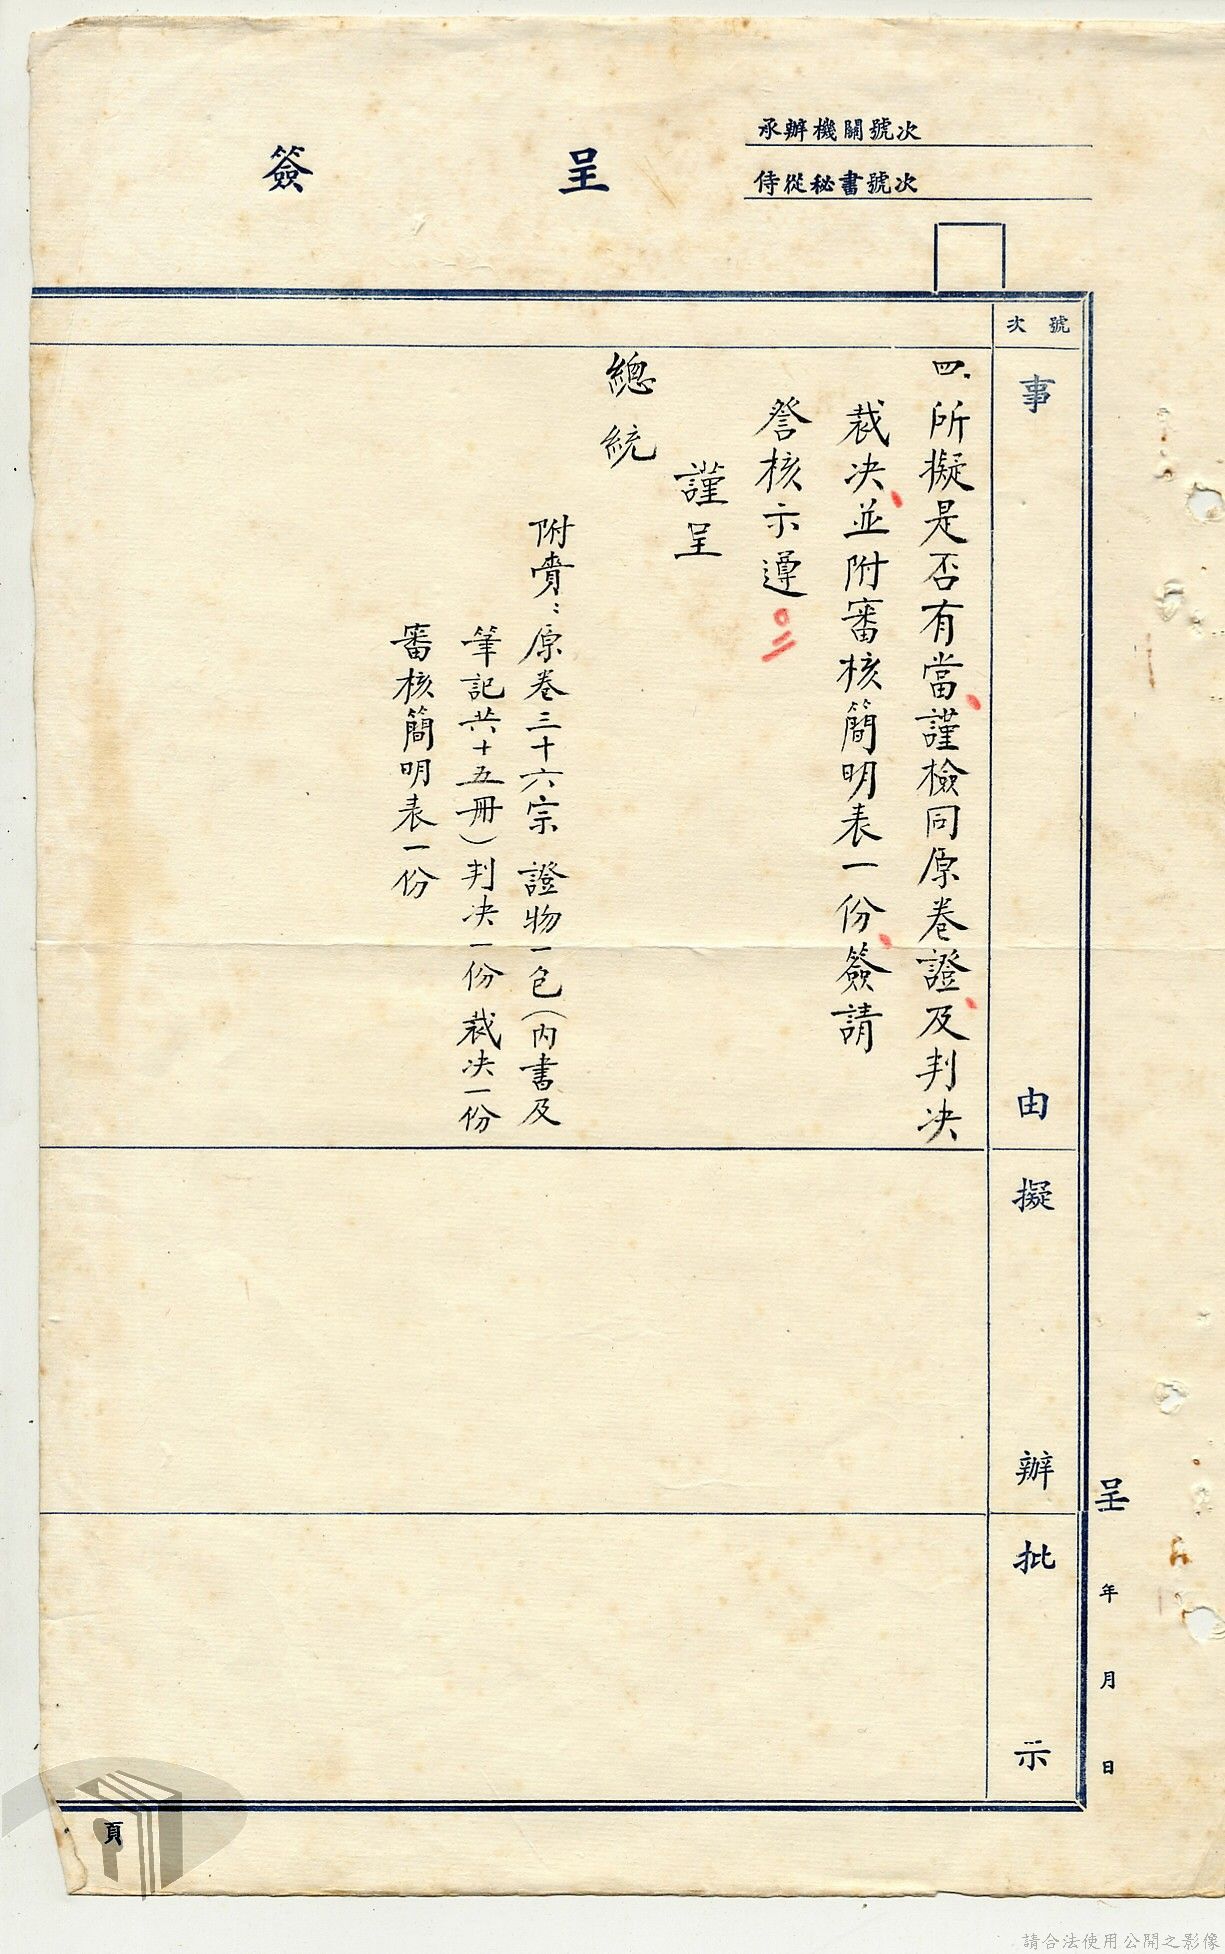 承辦機關號次
侍從秘書號次
簽呈
號次
事由
擬辦
批示
呈 年 月 日
四、所擬是否有當謹檢同原卷證及判决
裁决並附審核簡明表一份簽請
詧核示遵
謹呈
總統
附賷：原卷三十六宗 證物一包（內書及
筆記共十五冊）判决一份 裁决一份
審核簡明表一份
頁
請合法使用公開之影像